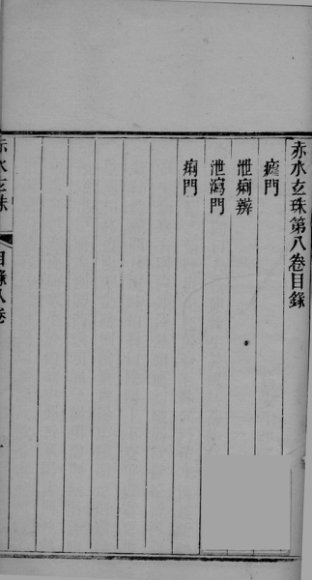 赤水玄珠第八卷目錄
瘧門
泄痢辨
泄瀉門
痢門
赤水玄珠
目錄八卷